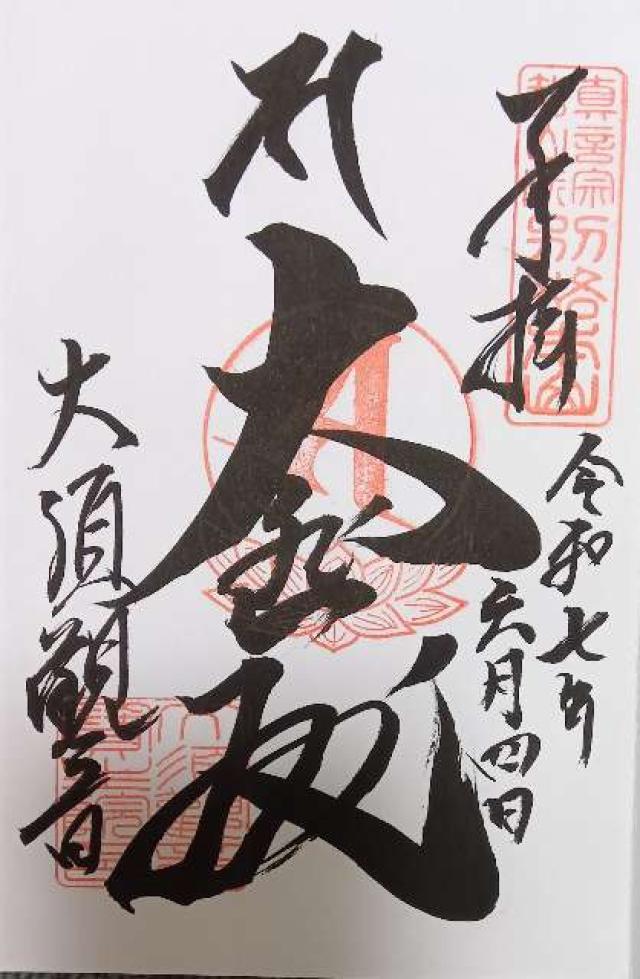 奉拝
令和七年
六月四日
大悲殿
大須観音
真言宗別格本山